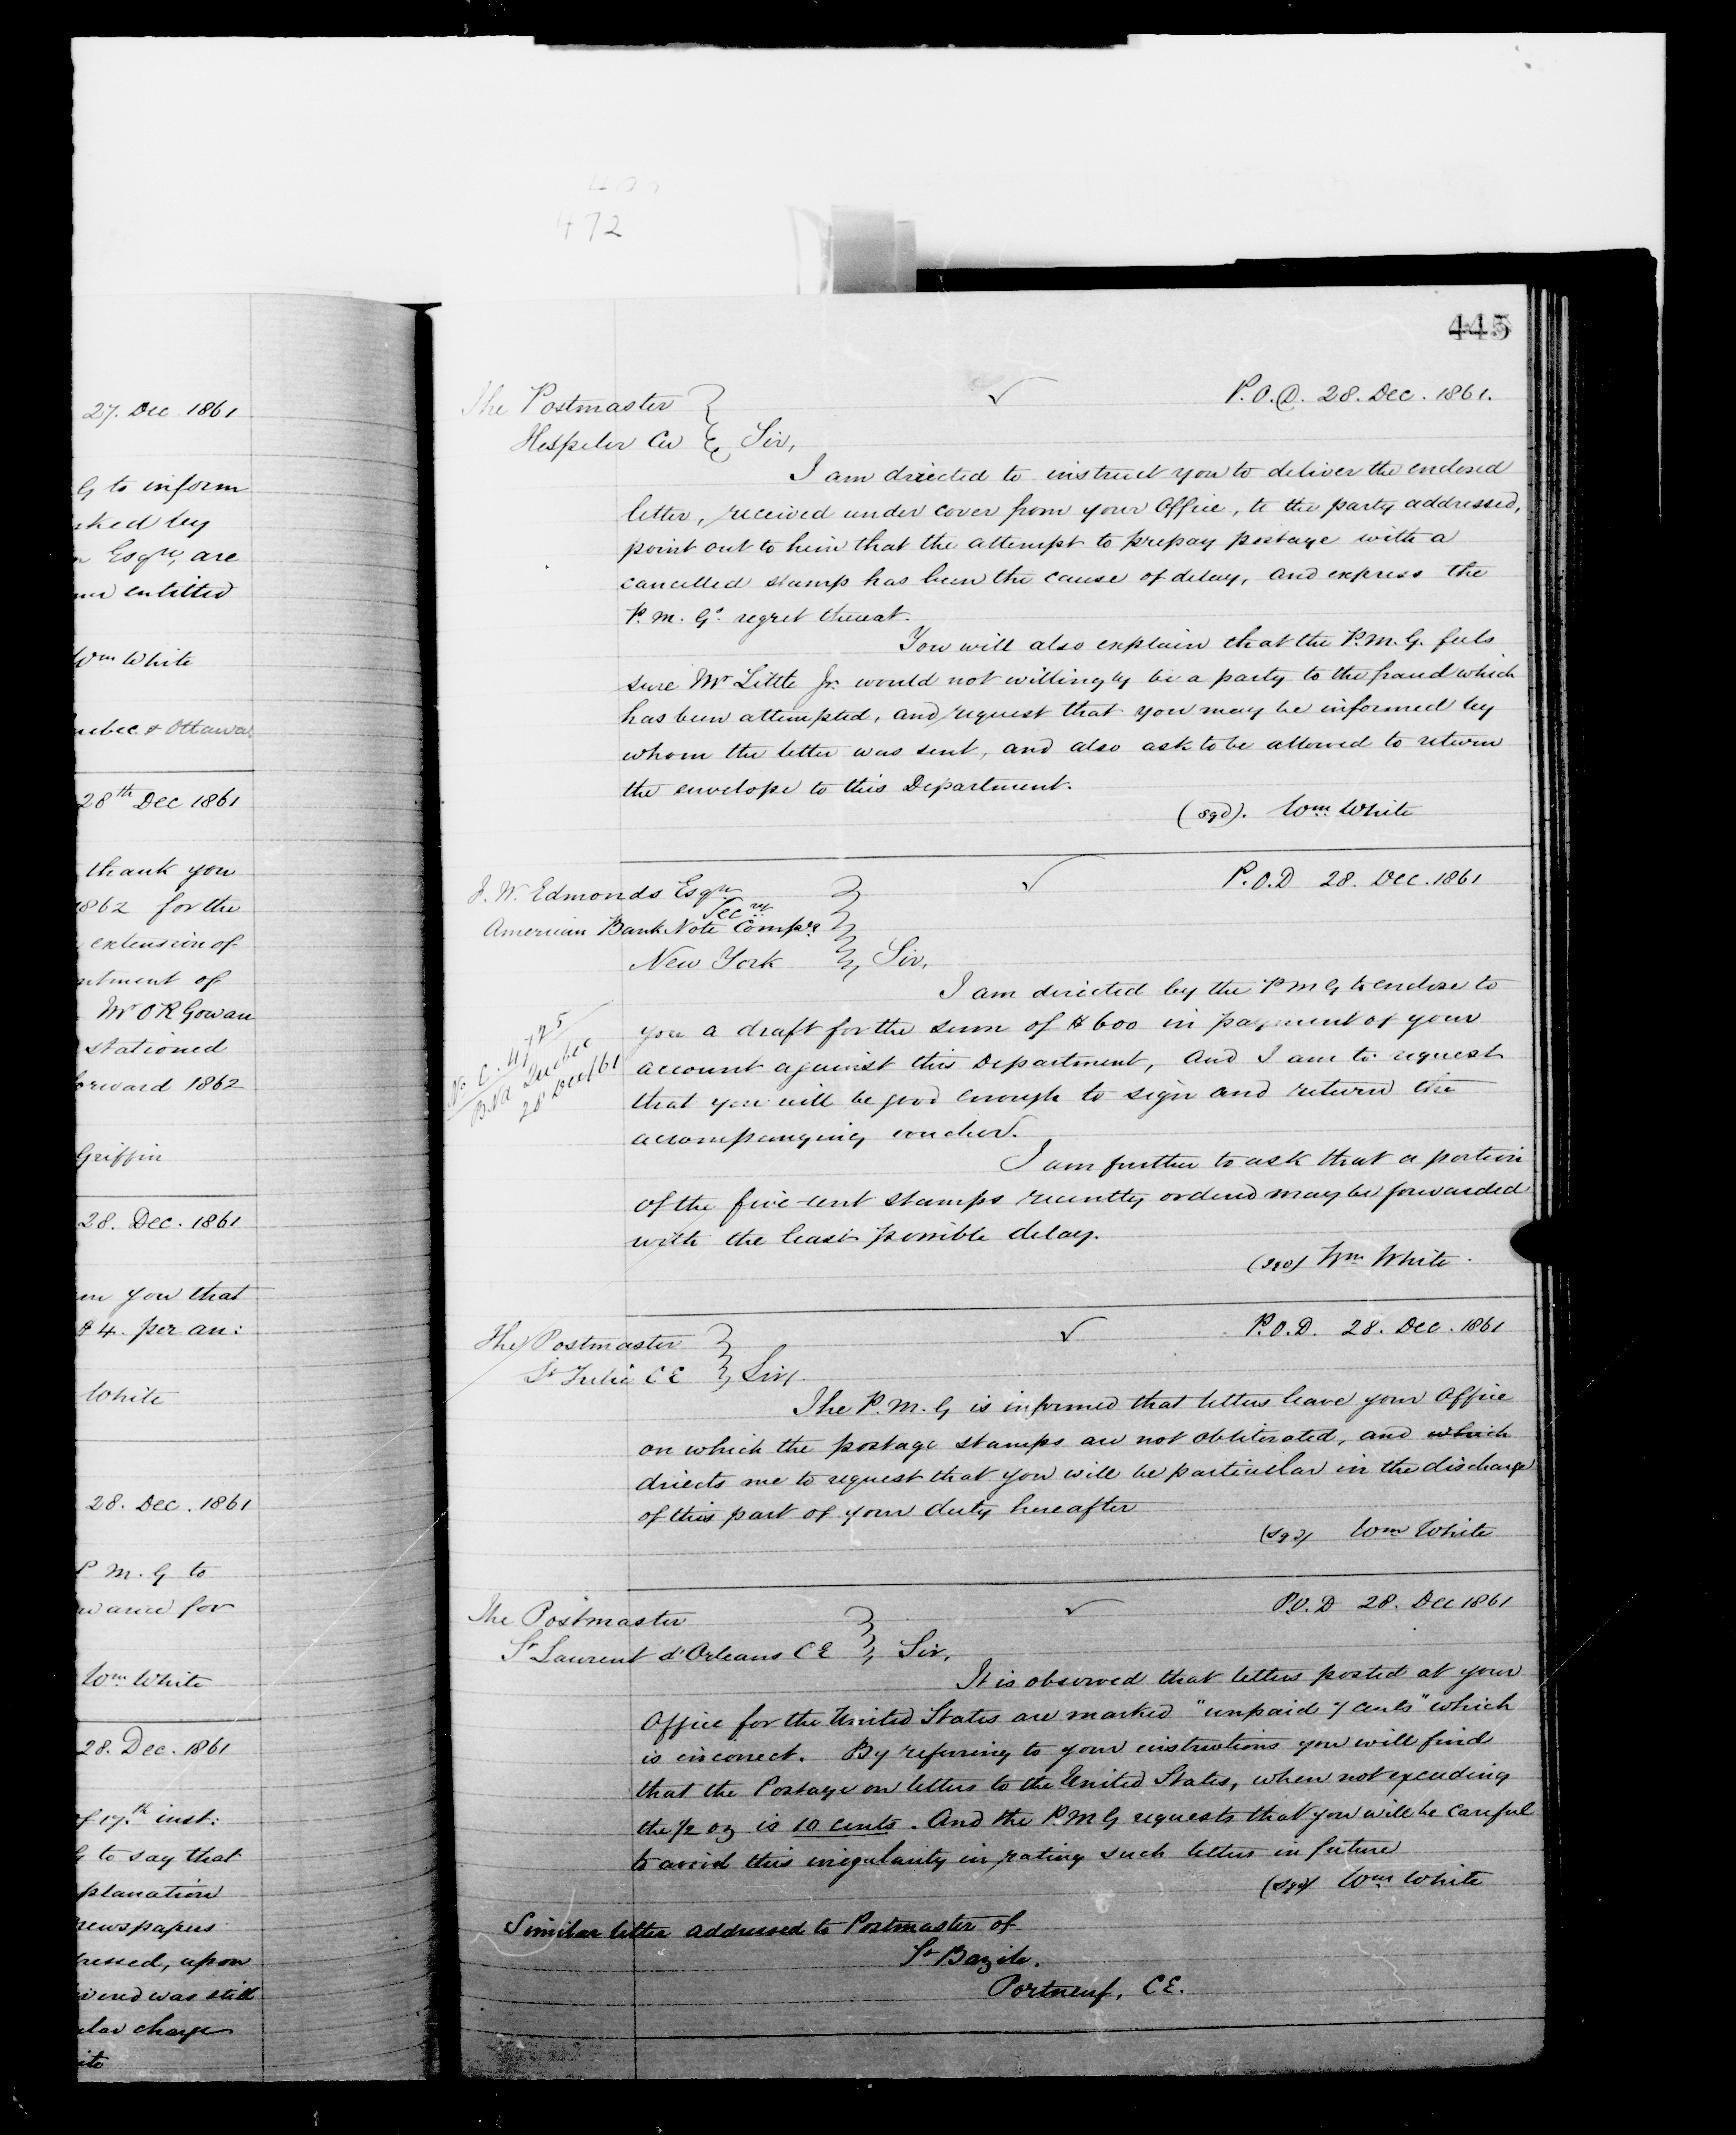 472
27. Dec 1861
G to inform
Esqre, are
entitled
Wm White
uebec & Ottawa.
28th Dec 1861
thank you
1862 for the
extension of
ntment of
Mr O R Gowan
stationed
orward 1862
Griffin
28. Dec. 1861
you that
$4. per an:
White
28. Dec. 1861
P M. G to
for
Wm White
28. Dec. 1861
f 17th inst:
G to say that
planation
newspapers
ressed, upon
ivered was still
ular charge
ite
445
The Postmaster
P.O.D. 28. Dec. 1861.
Hespeler CW Sir,
I am directed to instruct you to deliver the enclosed
letter, received under cover from your Office, to the party addressed,
point out to him that the attempt to prepay postage with a
cancelled stamp has been the cause of delay, and express the
P. M. Gs. regret thereat.
You will also explain that the P.M.G. feels
sure Mr Little Jr. would not willingly be a party to the fraud which
has been attempted, and request that you may be informed by
whom the letter was sent, and also ask to be allowed to return
the envelope to this Department.
(sgd). Wm White
J. W. Edmonds Esqre
P.O.D 28. Dec. 1861
Secry
American Bank Note Compy
New York Sir,
I am directed by the P M G to enclose to
you a draft for the sum of $600 in payment of your
account against this Department, And I am to request
that you will be good enough to sign and return the
accompanying voucher.
No C. 4725
Quebec
28 Dec/61
I am further to ask that a portion
of the five-cent stamps recently ordered may be forwarded
with the least possible delay.
(sgd) Wm White.
The Postmaster
P.O.D. 28. Dec. 1861
St Julie C E Sir,
The P. M. G is informed that letters leave your Office
on which the postage stamps are not obliterated, and which
directs me to request that you will be particular in the discharge
of this part of your duty hereafter
(sgd) Wm White
The Postmaster
P.O.D 28. Dec 1861
St Laurent d'Orleans C E Sir,
It is observed that letters posted at your
Office for the United States are marked "unpaid 7 cents" which
is incorrect. By referring to your instructions you will find
that the Postage on letters to the United States, when not exceeding
the 1/2 oz is 10 cents. And the P M G requests that you will be careful
to avoid this irregularity in rating such letters in future
(sgd) Wm White
Similar letter addressed to Postmaster of
St Bazile.
Portneuf, C E.